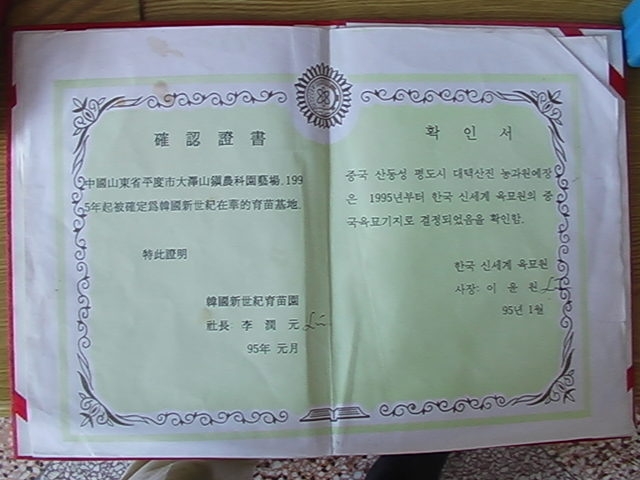 確認證書
中國山東省平度市大澤山鎭農科園藝場, 199
5年起被確定爲韓國新世紀在華的育苗基地.
特此證明
韓國新世紀育苗園
社長 李 潤 元
95年 元月
확 인 서
중국 산동성 평도시 대택산진 농과원예장
은 1995년부터 한국 신세계 육묘원의 중
국육묘기지로 결정되었음을 확인함.
한국 신세계 육묘원
사장: 이 윤 원
95년 1월